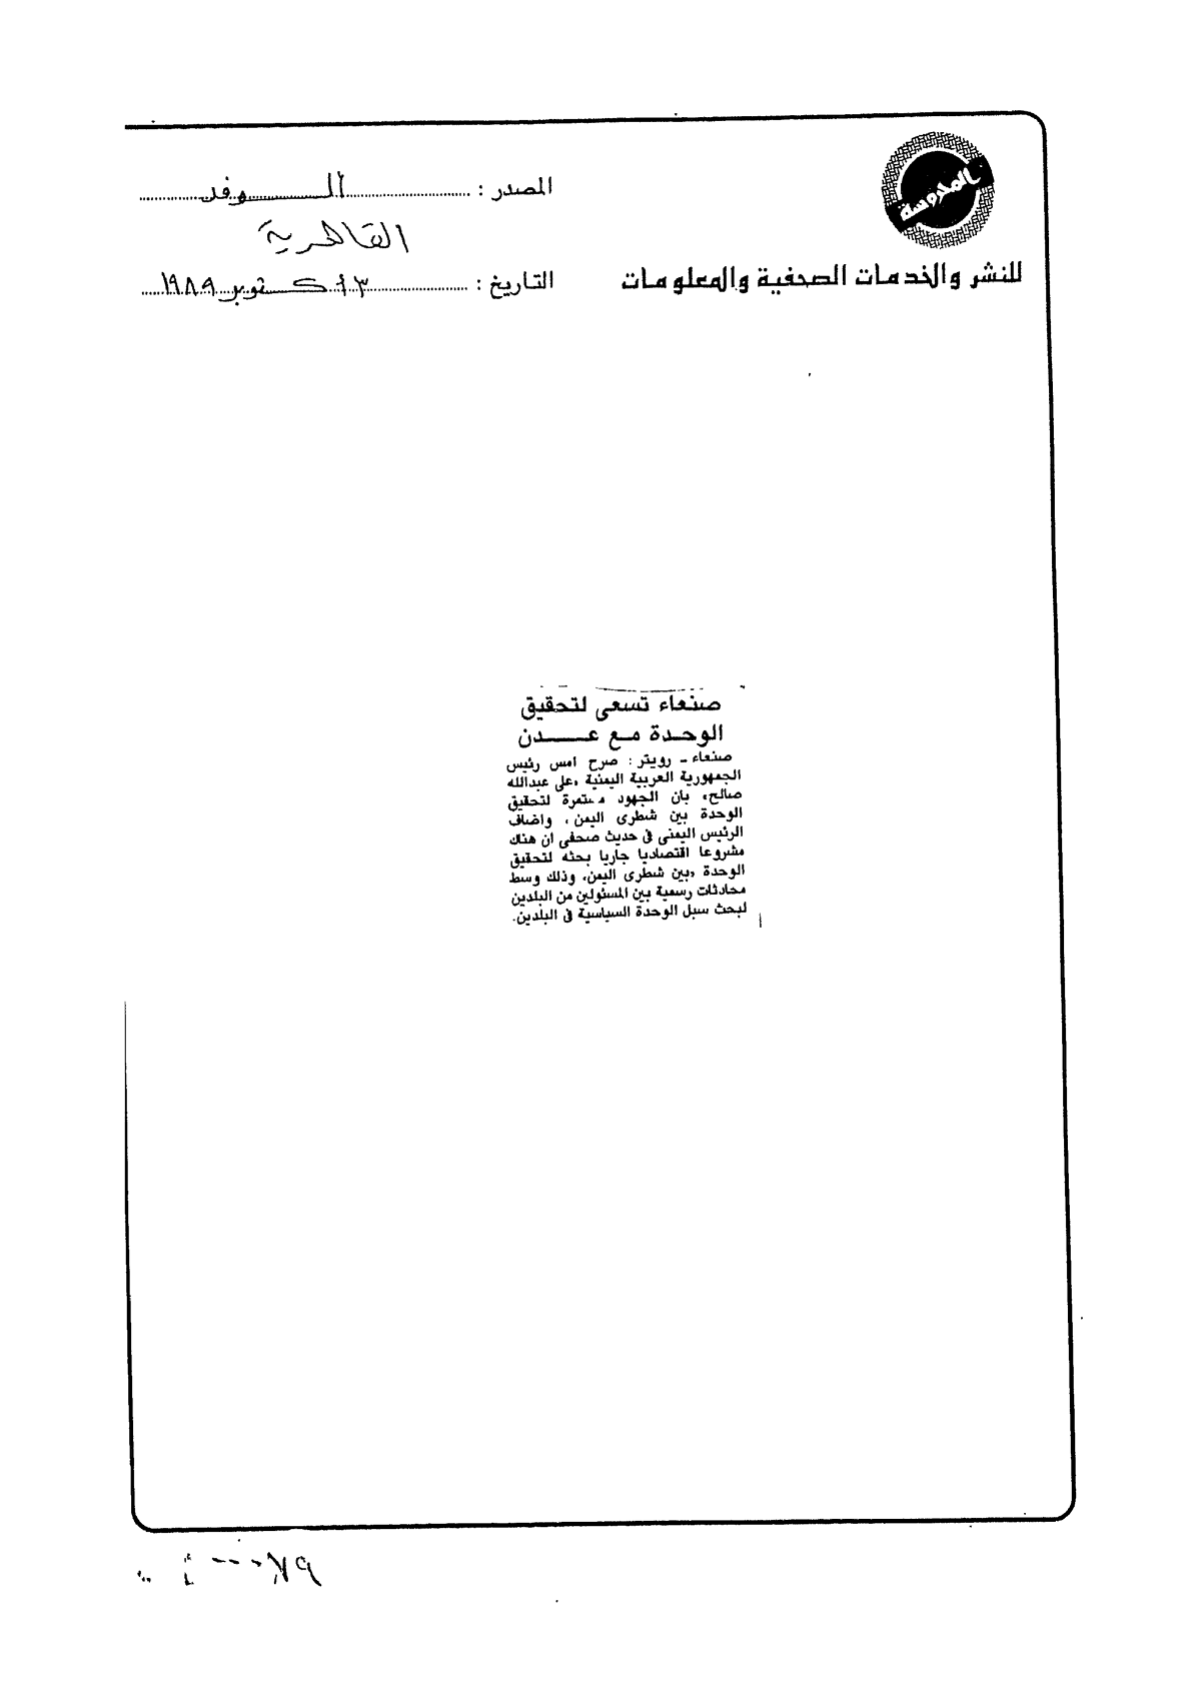 المحروسة
للنشر والخدمات الصحفية والمعلومات
المصدر : الوفد
القاهرية
التاريخ : ٣ أكتوبر ١٩٨٩
صنعاء تسعى لتحقيق
الوحدة مع عدن
صنعاء ـ رويتر : صرح امس رئيس
الجمهورية العربية اليمنية «على عبدالله
صالح» بان الجهود مستمرة لتحقيق
الوحدة بين شطرى اليمن ، واضاف
الرئيس اليمنى فى حديث صحفى ان هناك
مشروعا اقتصاديا جاريا بحثه لتحقيق
الوحدة «بين شطرى اليمن» وذلك وسط
محادثات رسمية بين المسئولين من البلدين
لبحث سبل الوحدة السياسية فى البلدين.